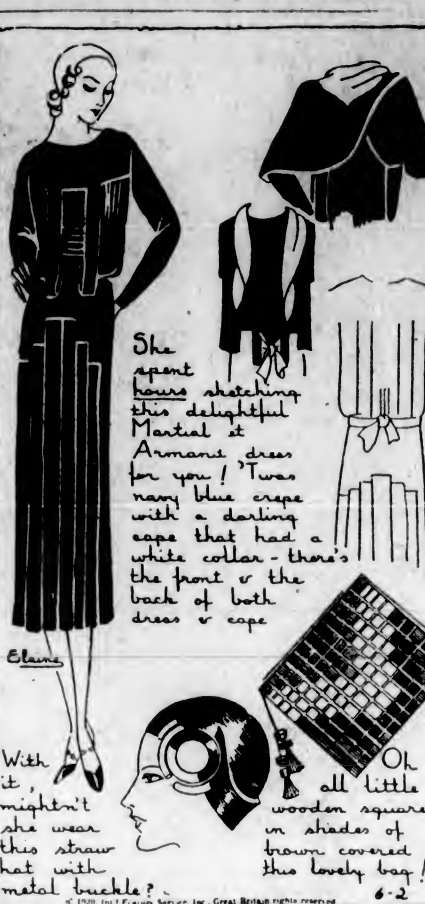 She
spent
hours sketching
this delightful
Martial et
Armand dress
for you! 'Twas
navy blue crepe
with a darling
cape that had a
white collar - there's
the front & the
back of both
dress & cape
Elaine
With
it,
mightn't
she wear
this straw
hat with
metal buckle?
Oh
all little
wooden square
in shades of
brown covered
this lovely bag!
6-2
Service, Inc., Great Britain rights reserved